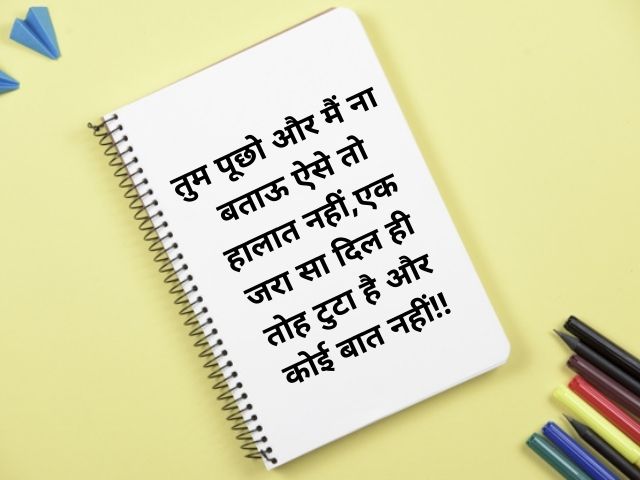 तुम पूछो और मैं ना
बताऊ ऐसे तो
हालात नहीं,एक
जरा सा दिल ही
तोह टुटा है और
कोई बात नहीं!!